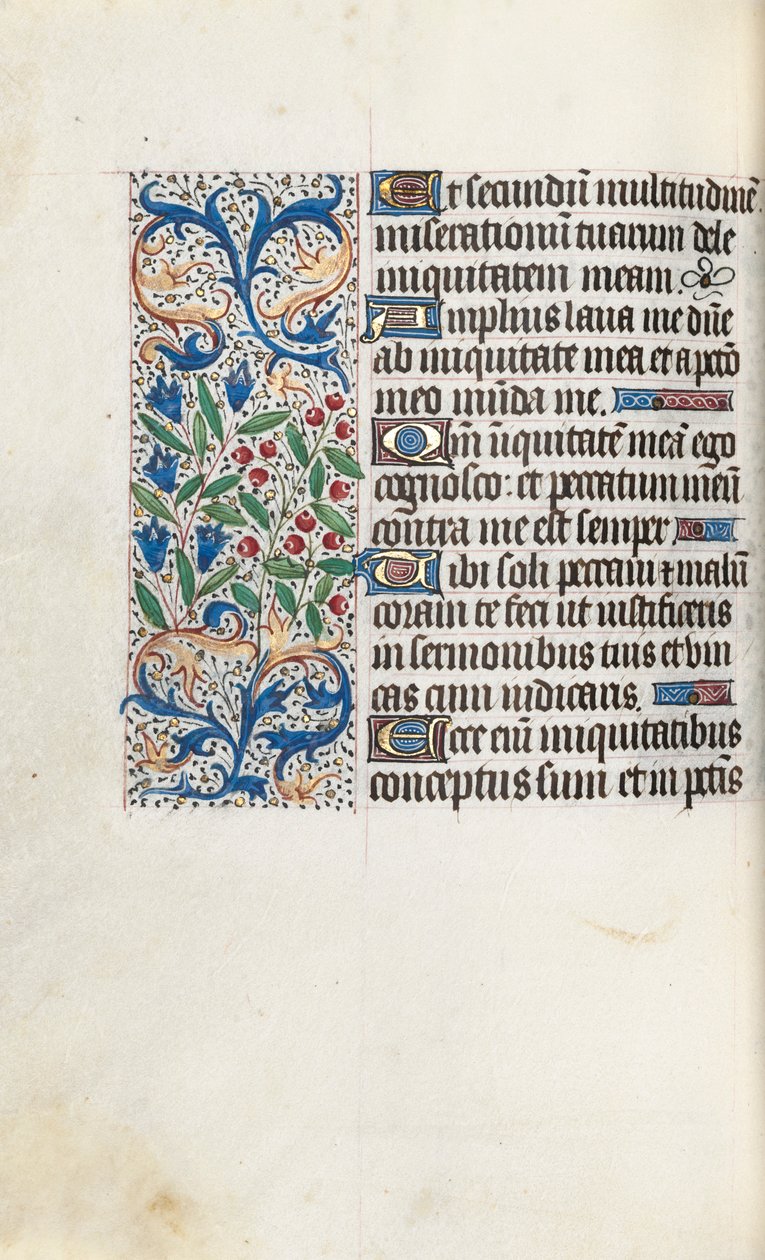 Et secundū multitudinē
miserationū tuarum dele
iniquitatem meam.
Amplius laua me dn̄e
ab iniquitate mea et a pctō
meo mūda me.
Qm̄ iniquitatē meā ego
cognosco: et peccatum meū
contra me est semper
Tibi soli peccaui et malū
coram te feci ut iustificeris
in sermonibus tuis et vin
cas cum iudicaris.
Ecce eni̅ iniquitatibus
conceptus sum et in pctīs